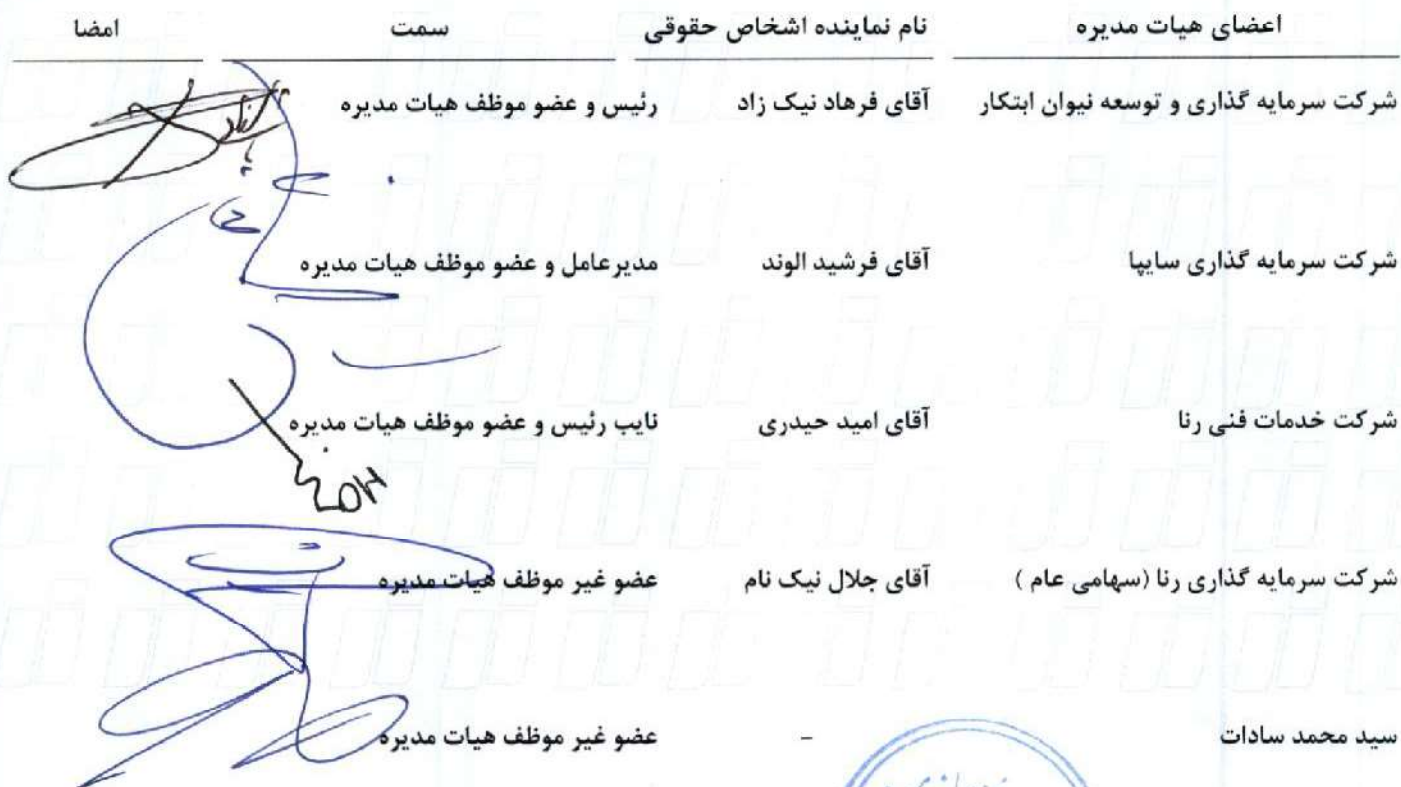 اعضای هیات مدیره نام نماینده اشخاص حقوقی سمت امضا
شرکت سرمایه گذاری و توسعه نیوان ابتکار آقای فرهاد نیک زاد رئیس و عضو موظف هیات مدیره
شرکت سرمایه گذاری سایپا آقای فرشید الوند مدیرعامل و عضو موظف هیات مدیره
شرکت خدمات فنی رنا آقای امید حیدری نایب رئیس و عضو موظف هیات مدیره
OH
شرکت سرمایه گذاری رنا (سهامی عام ) آقای جلال نیک نام عضو غیر موظف هیات مدیره
سید محمد سادات - عضو غیر موظف هیات مدیره